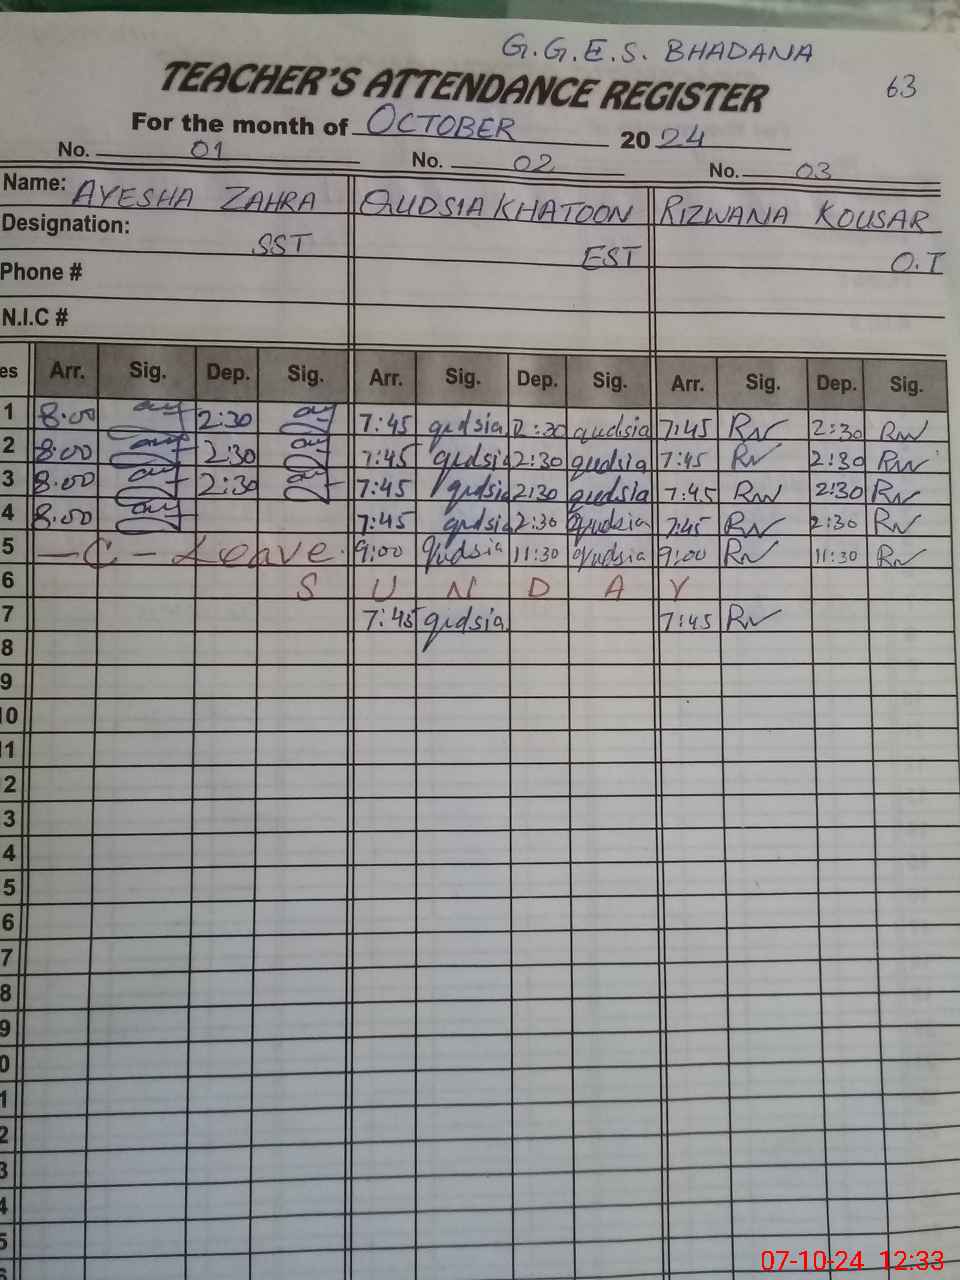 G.G.E.S. BHADANA
TEACHER'S ATTENDANCE REGISTER 63
For the month of OCTOBER 2024
No. 01 No. 02 No. 03
Name: AYESHA ZAHRA QUDSIA KHATOON RIZWANA KOUSAR
Designation: SST EST O.T
Phone #
N.I.C #
es Arr. Sig. Dep. Sig. Arr. Sig. Dep. Sig. Arr. Sig. Dep. Sig.
1 8:00 2:30 7:45 qudsia 2:30 qudsia 7:45 RN 2:30 RN
2 8:00 2:30 7:45 qudsia 2:30 qudsia 7:45 RN 2:30 RN
3 8:00 2:30 7:45 qudsia 2:30 qudsia 7:45 RN 2:30 RN
4 8:00 7:45 qudsia 2:30 qudsia 7:45 RN 2:30 RN
5 — C — Leave. 9:00 qudsia 11:30 qudsia 9:00 RN 11:30 RN
6 S U N D A Y
7 7:45 qudsia 7:45 RN
8
9
10
11
2
3
4
5
6
7
8
9
0
1
2
3
4
5
6
07-10-24 12:33